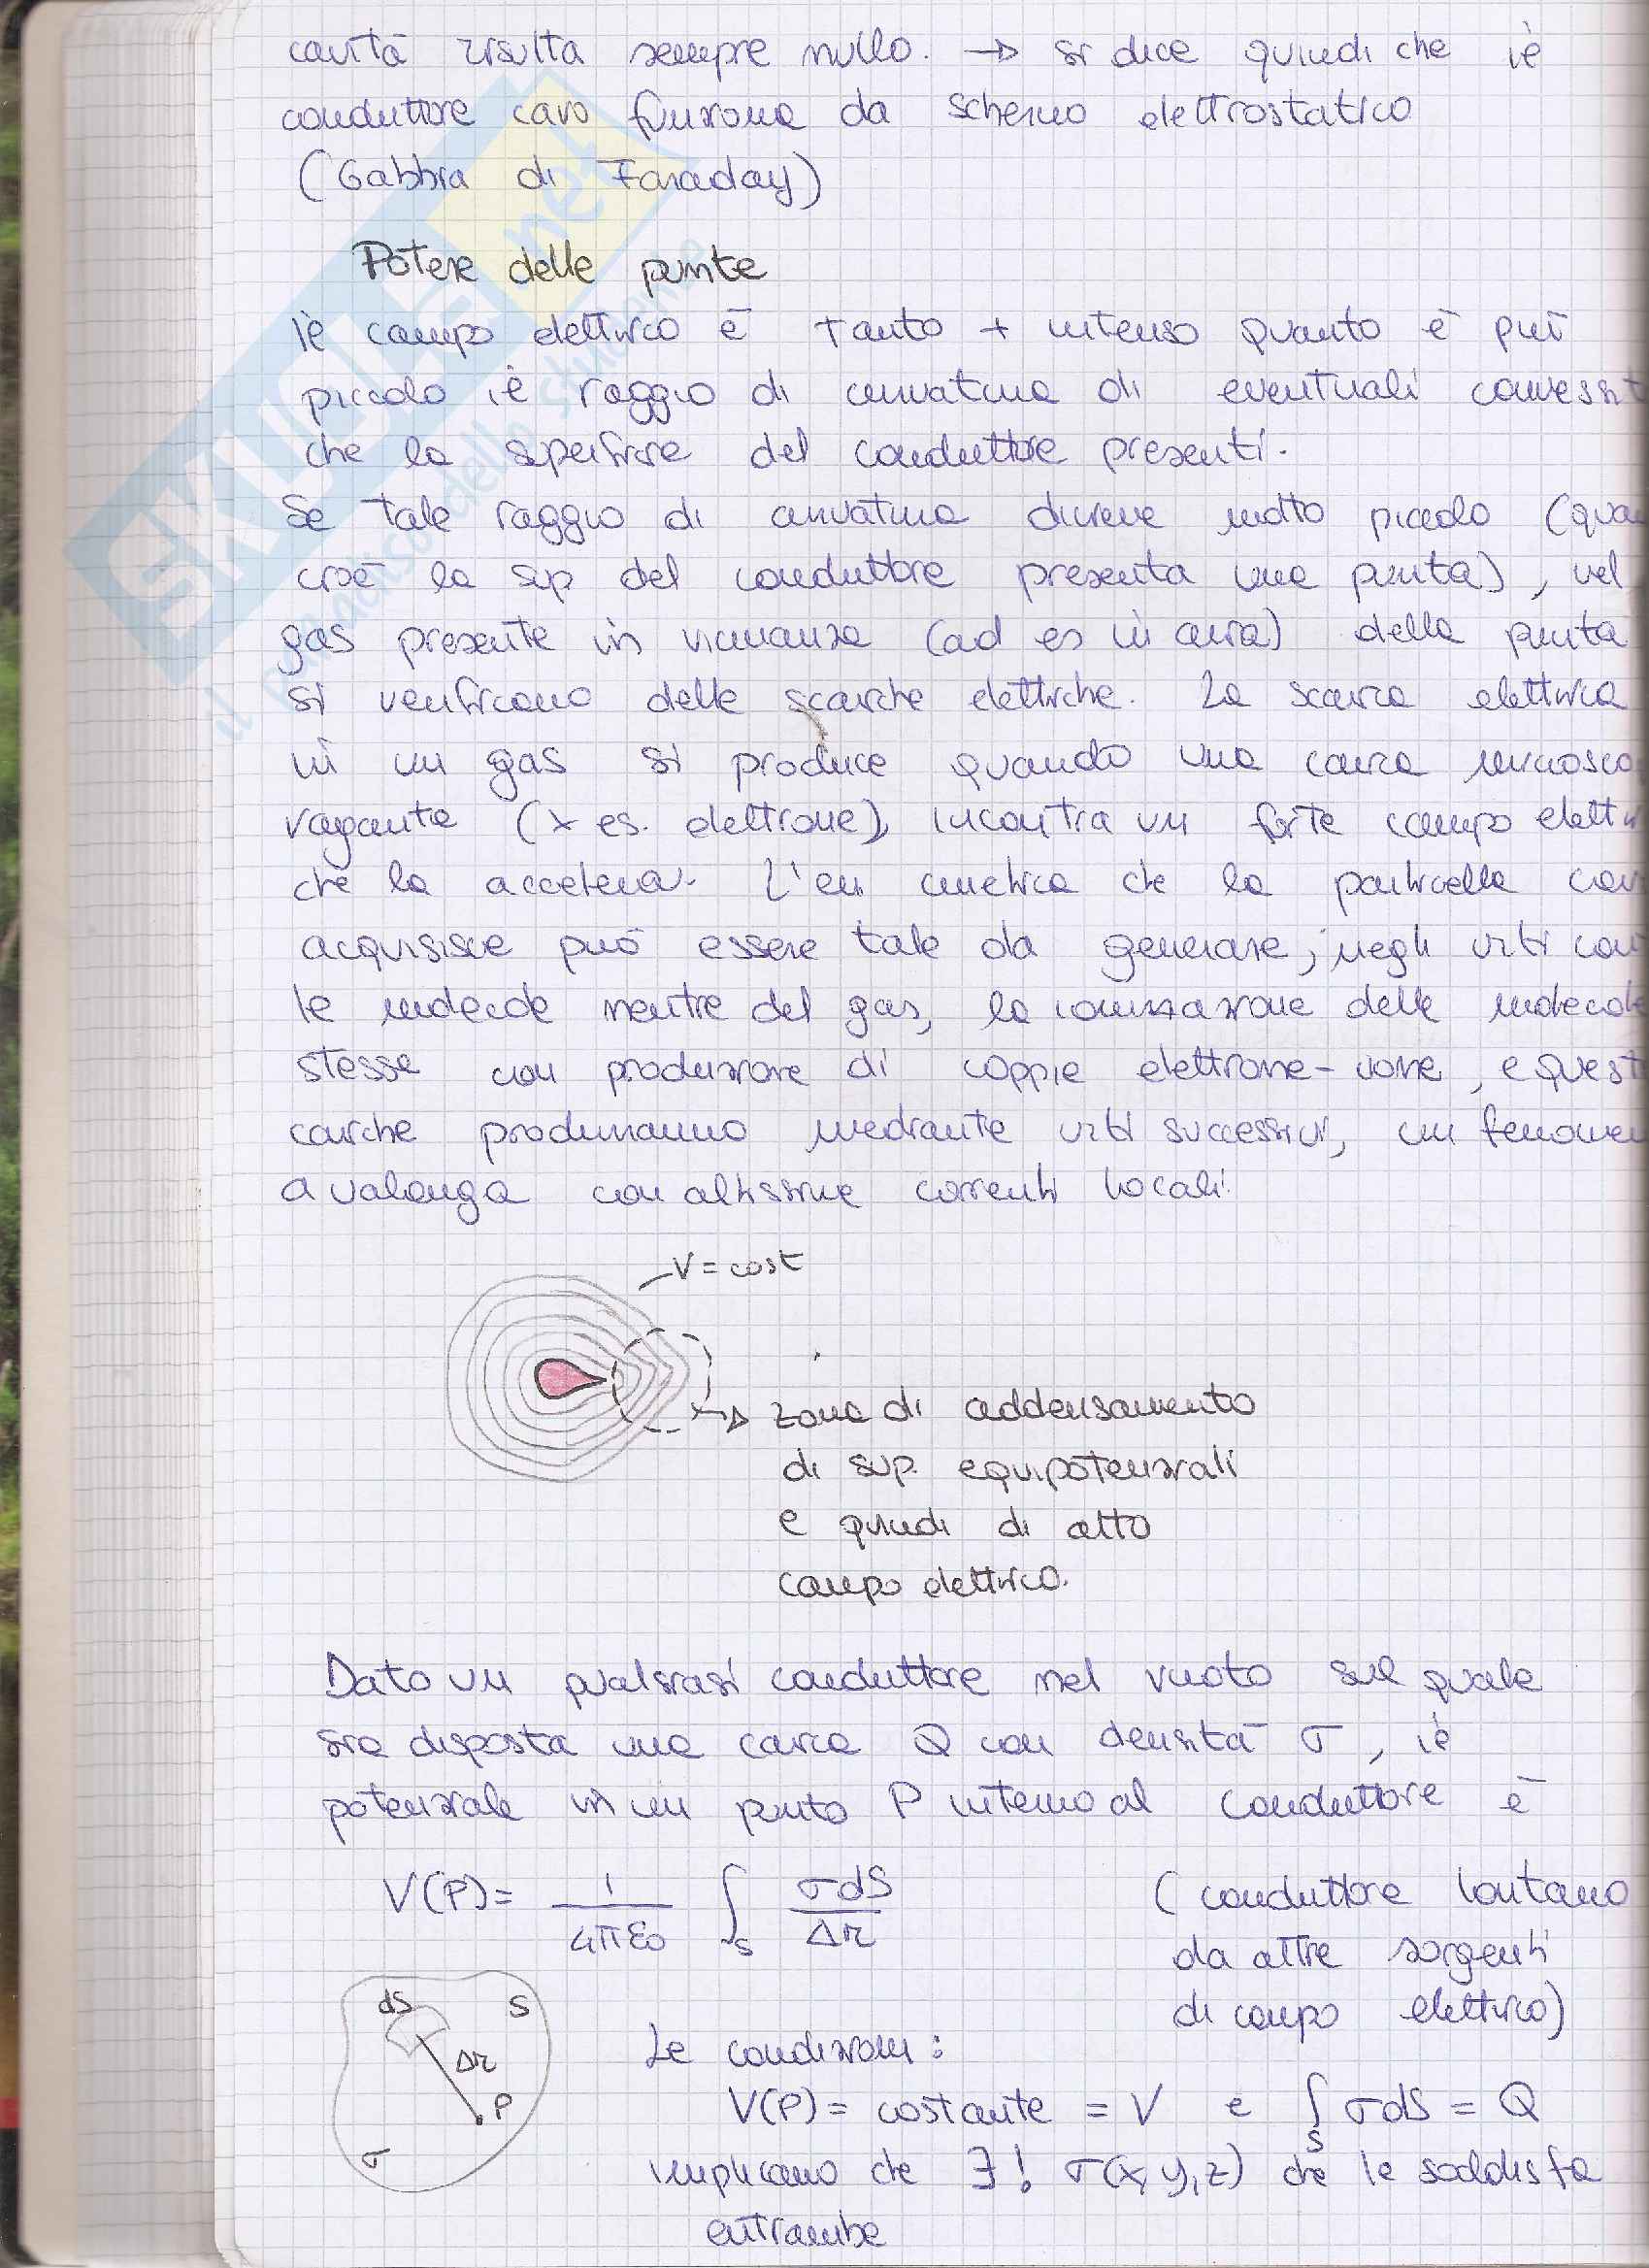 cavità risulta sempre nullo. → si dice quindi che il
conduttore cavo funziona da schermo elettrostatico
(Gabbia di Faraday)
Potere delle punte
Il campo elettrico è tanto + intenso quanto è più
piccolo il raggio di curvatura di eventuali convessit
che la superficie del conduttore presenti.
Se tale raggio di curvatura diviene molto piccolo (qua
cioè la sup del conduttore presenta una punta), nel
gas presente in vicinanza (ad es in aria) della punta
si verificano delle scariche elettriche. La scarica elettrica
in un gas si produce quando una carica microsco
vagante (x es. elettrone), incontra un forte campo elettr
che la accelera. L'en cinetica che la particella cari
acquisisce può essere tale da generare, negli urti con
le molecole neutre del gas, la ionizzazione delle molecole
stesse con produzione di coppie elettrone-ione, e quest
cariche produrranno mediante urti successivi, un fenomen
a valanga con altissime correnti locali.
V = cost
zona di addensamento
di sup. equipotenziali
e quindi di alto
campo elettrico.
Dato un qualsiasi conduttore nel vuoto sul quale
sia disposta una carica Q con densità σ, il
potenziale in un punto P interno al conduttore è
V(P) = 1/(4πε0) ∫S σdS/Δr (conduttore lontano
da altre sorgenti
di campo elettrico)
dS S
Δr
P
σ
Le condizioni:
V(P) = costante = V e ∫S σdS = Q
implicano che ∃! σ(x,y,z) che le soddisfa
entrambe
SKUOLA.net
il paradiso dello studente